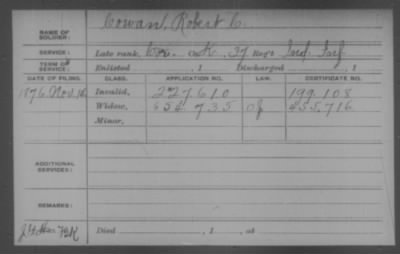 Cowan, Robert C.
NAME OF SOLDIER:
SERVICE: Late rank, Co. K, 37 Reg't Ind. Inf.
TERM OF SERVICE: Enlisted , 1 Discharged , 1
DATE OF FILING. CLASS. APPLICATION NO. LAW. CERTIFICATE NO.
1876 Nov. 16 Invalid, 227610 199.108
Widow, 654.735 455.716
Minor,
ADDITIONAL SERVICES:
REMARKS:
Died , 1 , at